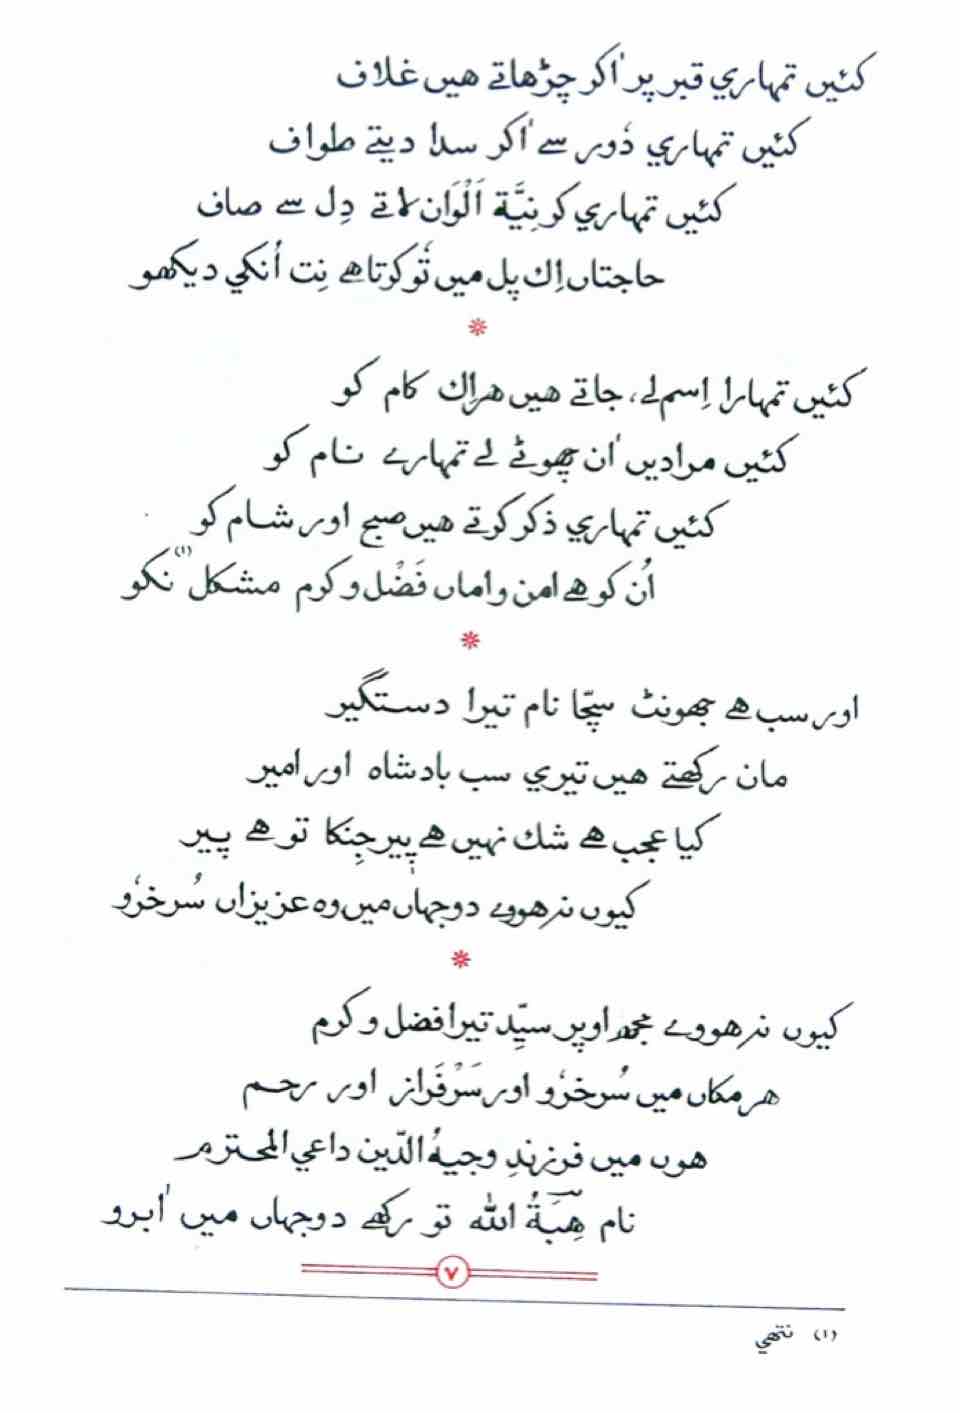 كئیں تمہاري قبر پر اٰكر چڑھاتے ھیں غلاف
كئیں تمہاري دُور سے اٰكر سدا دیتے طواف
كئیں تمہاري كر نِیَّة اَلْوَان لاتے دِل سے صاف
حاجتاں اِك پل میں تُو كرتا ھے نِت اُنكي دیكھو
*
كئیں تمہارا اِسم لے، جاتے ھیں ھر اِك كام كو
كئیں مرادیں اٰن چھوٹے لے تمہارے نام كو
كئیں تمہاري ذكر كرتے ھیں صبح اور شام كو
اُن كو ھے امن و اماں فَضْل و كرم مشكل نكو (١)
*
اور سب ھے جھونٹ سچّا نام تیرا دستگیر
مان ركھتے ھیں تیري سب بادشاہ اور امیر
كیا عجب ھے شك نہیں ھے پیر جِنكا تو ھے پیر
كیوں نہ ھووے دوجہاں میں وہ عزیزاں سُرخرُو
*
كیوں نہ ھووے مجھ اوپر سیِّد تیرا فضل و كرم
ھر مكاں میں سُرخرُو اور سَرْفَراز اور رحم
ھوں میں فرزندِ وجیہُ الدّین داعي المحترم
نام ھِبَةُ اللّٰه تو ركھے دوجہاں میں اٰبرو
٧
(١) نتھي